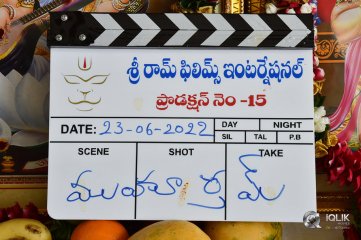 శ్రీ రామ్ ఫిలిమ్స్ ఇంటర్నేషనల్
ప్రొడక్షన్ నెం -15
DATE: 23-06-2022
DAY NIGHT
SIL TAL P.B
SCENE SHOT TAKE
ముహూర్తమ్
IQLIK